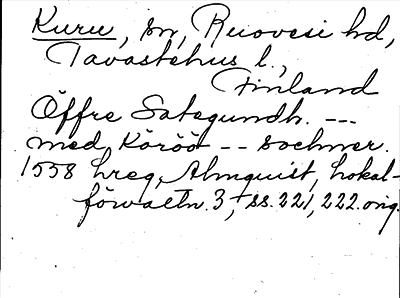 Kuru, sn, Ruovesi hd,
Tavastehus l.,
Finland
Öffre Sategundh. ---
med Köröö -- sochner.
1558 hreg, Almquist, Lokal-
förvaltn. 3, ss. 221, 222. orig.